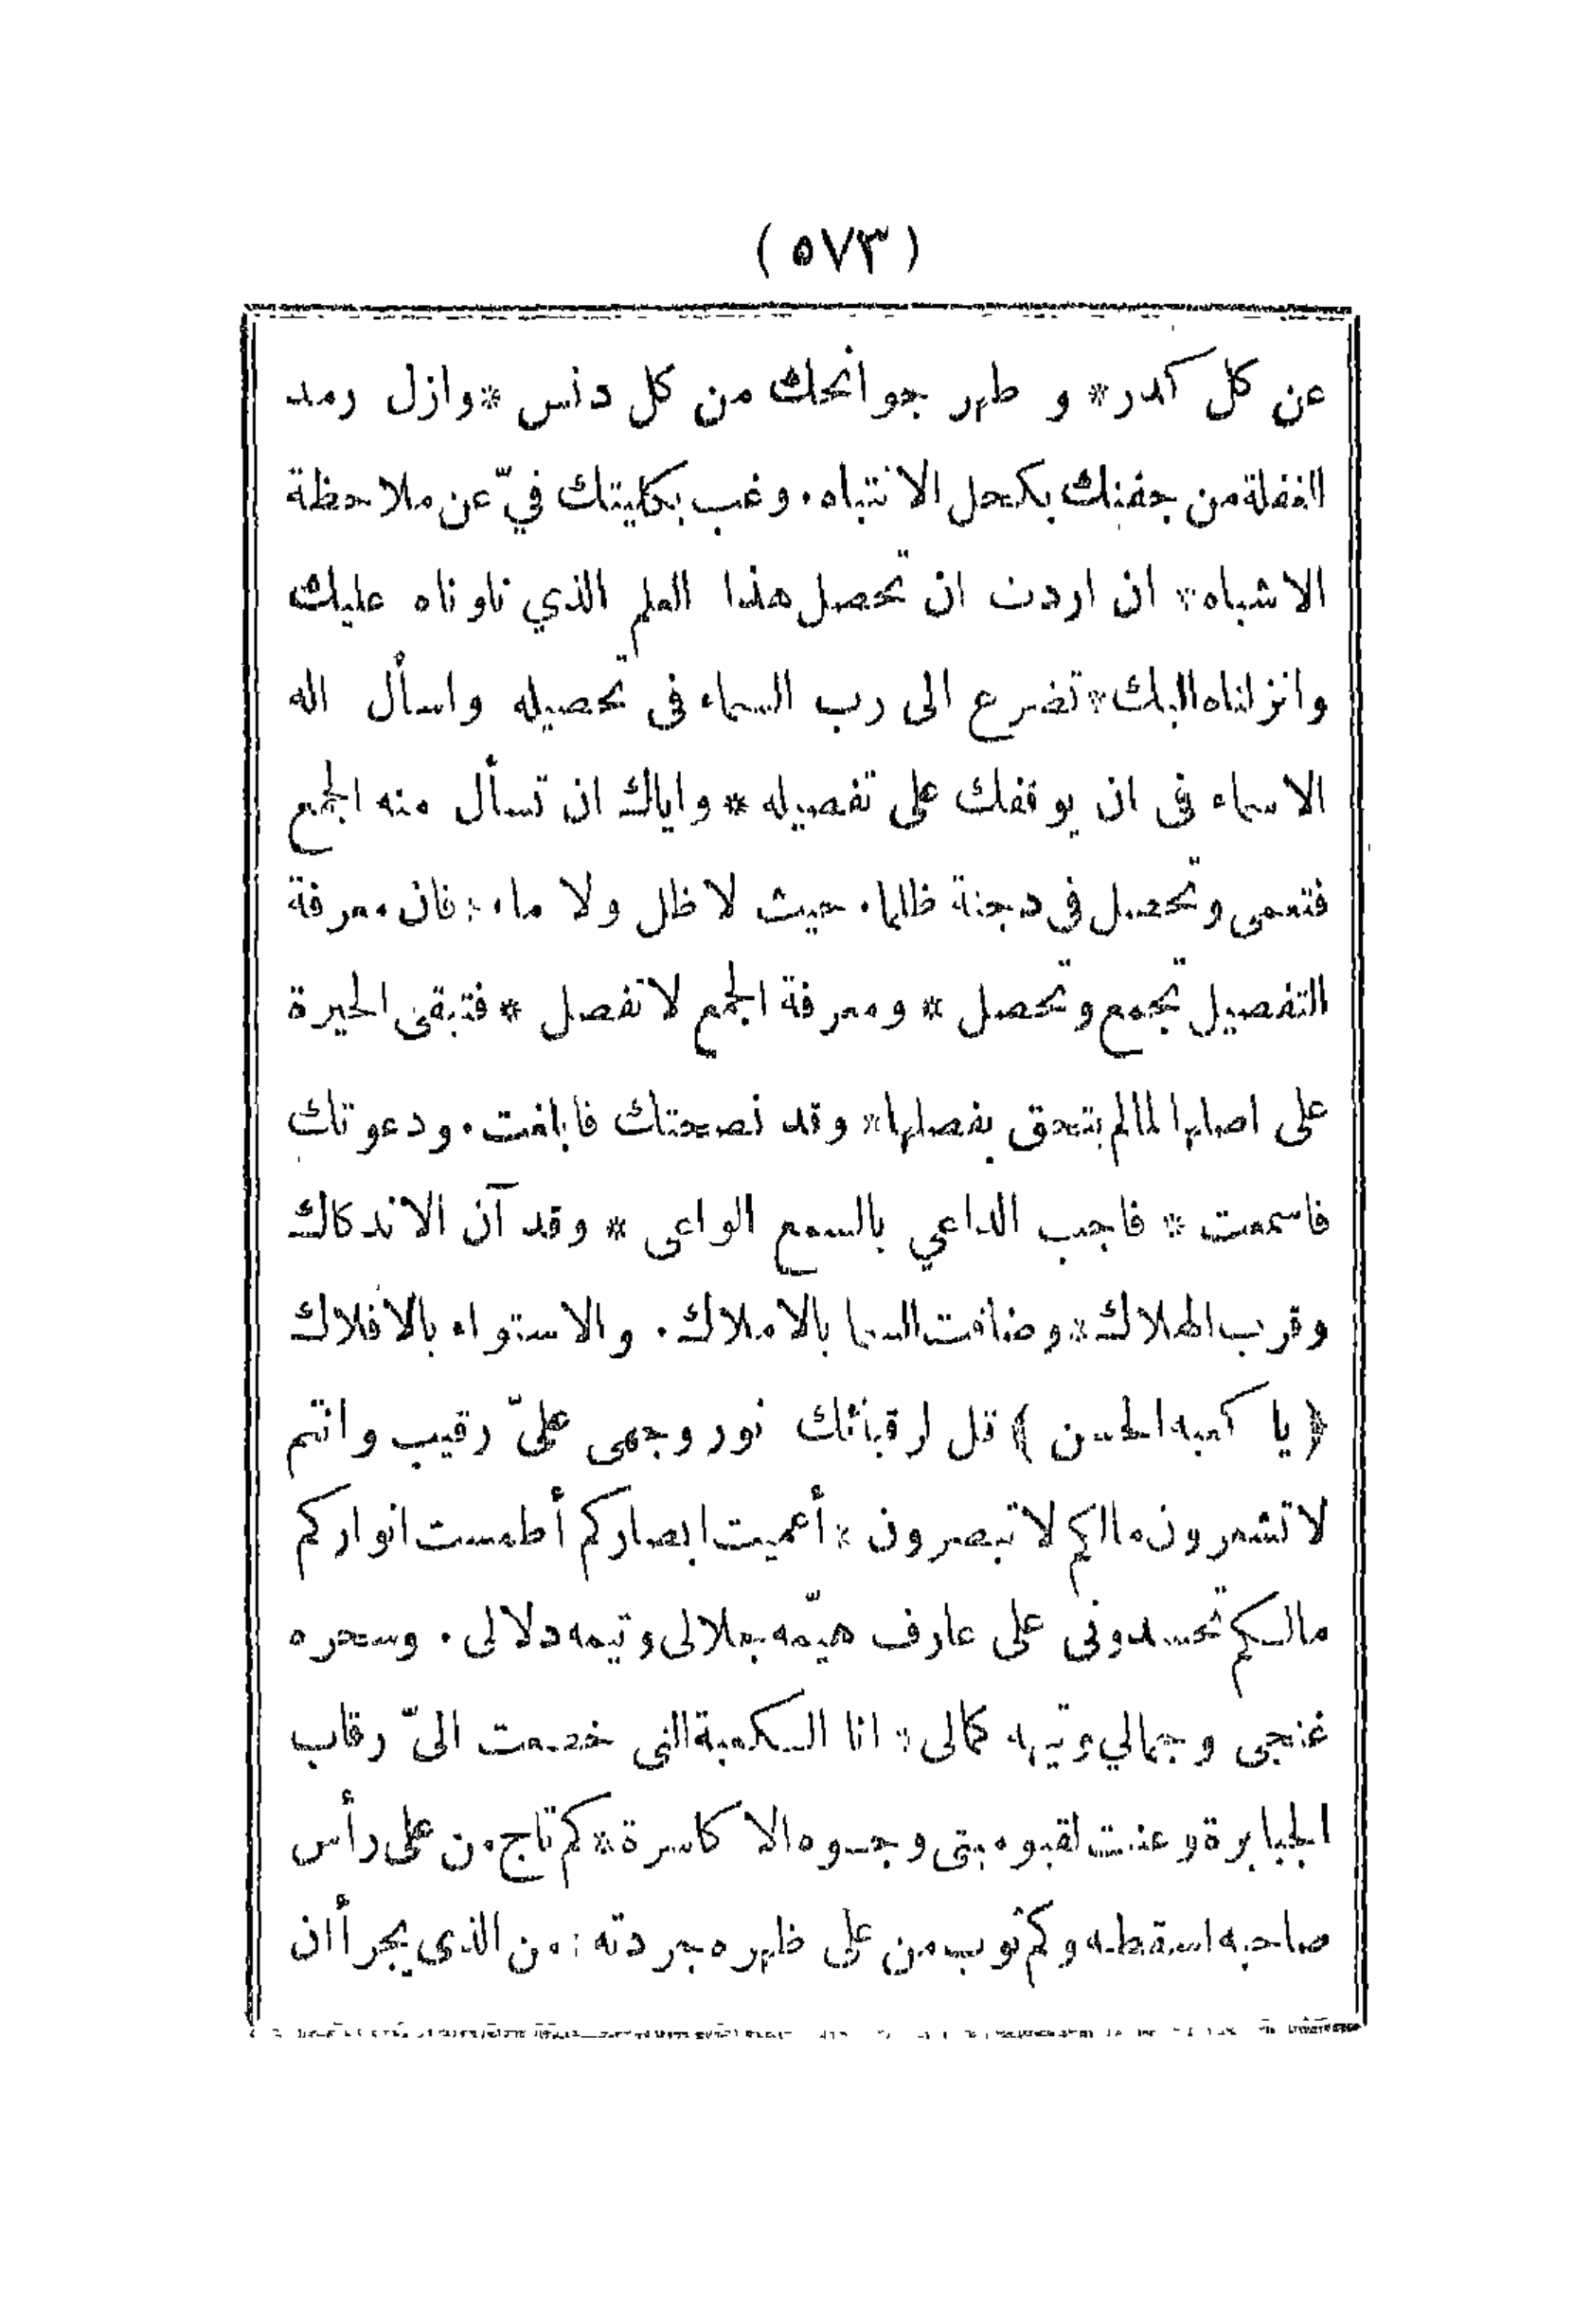 (٥٧٣)
عن كل كدر * و طهر جوانحك من كل دنس * وازل رمد
الغفلة من جفنك بكحل الانتباه. وغب بكليتك فيّ عن ملاحظة
الاشباه * ان اردت ان تحصل هذا العلم الذي تلوناه عليك
وانزلناه اليك * تضرع الى رب السماء فى تحصيله واسأل اله
الاسماء فى ان يوقفك على تفصيله * واياك ان تسأل منه الجمع
فتعمى وتحصل فى دجنة ظلما. حيث لا ظل ولا ماء * فان معرفة
التفصيل تجمع وتحصل * ومعرفة الجمع لا تفصل * فتبقى الحيرة
على اصلها لما لم يتحق بفصلها * وقد نصحتك فابلغت. ودعوتك
فاسمعت * فاجب الداعي بالسمع الواعى * وقد آن الاندكاك
وقرب الهلاك * وضاقت السما بالاملاك. والاستواء بالافلاك
﴿يا كعبه الحسن﴾ قل لرقبائك نور وجهى علىّ رقيب وانتم
لا تشعرون مالكم لا تبصرون * أعميت ابصاركم أطمست انواركم
مالكم تحسدونى على عارف هيّمه جلالى وتيمه دلالى. وسحره
غنجى وجمالي وتيهه كمالى * انا الكعبة التى خضعت الىّ رقاب
الجبابرة وعنت لقيوميتى وجوه الاكاسرة * كم تاج من على رأس
صاحبه اسقطه وكم ثوب من على ظهره جردته * من الذى يجرأ ان